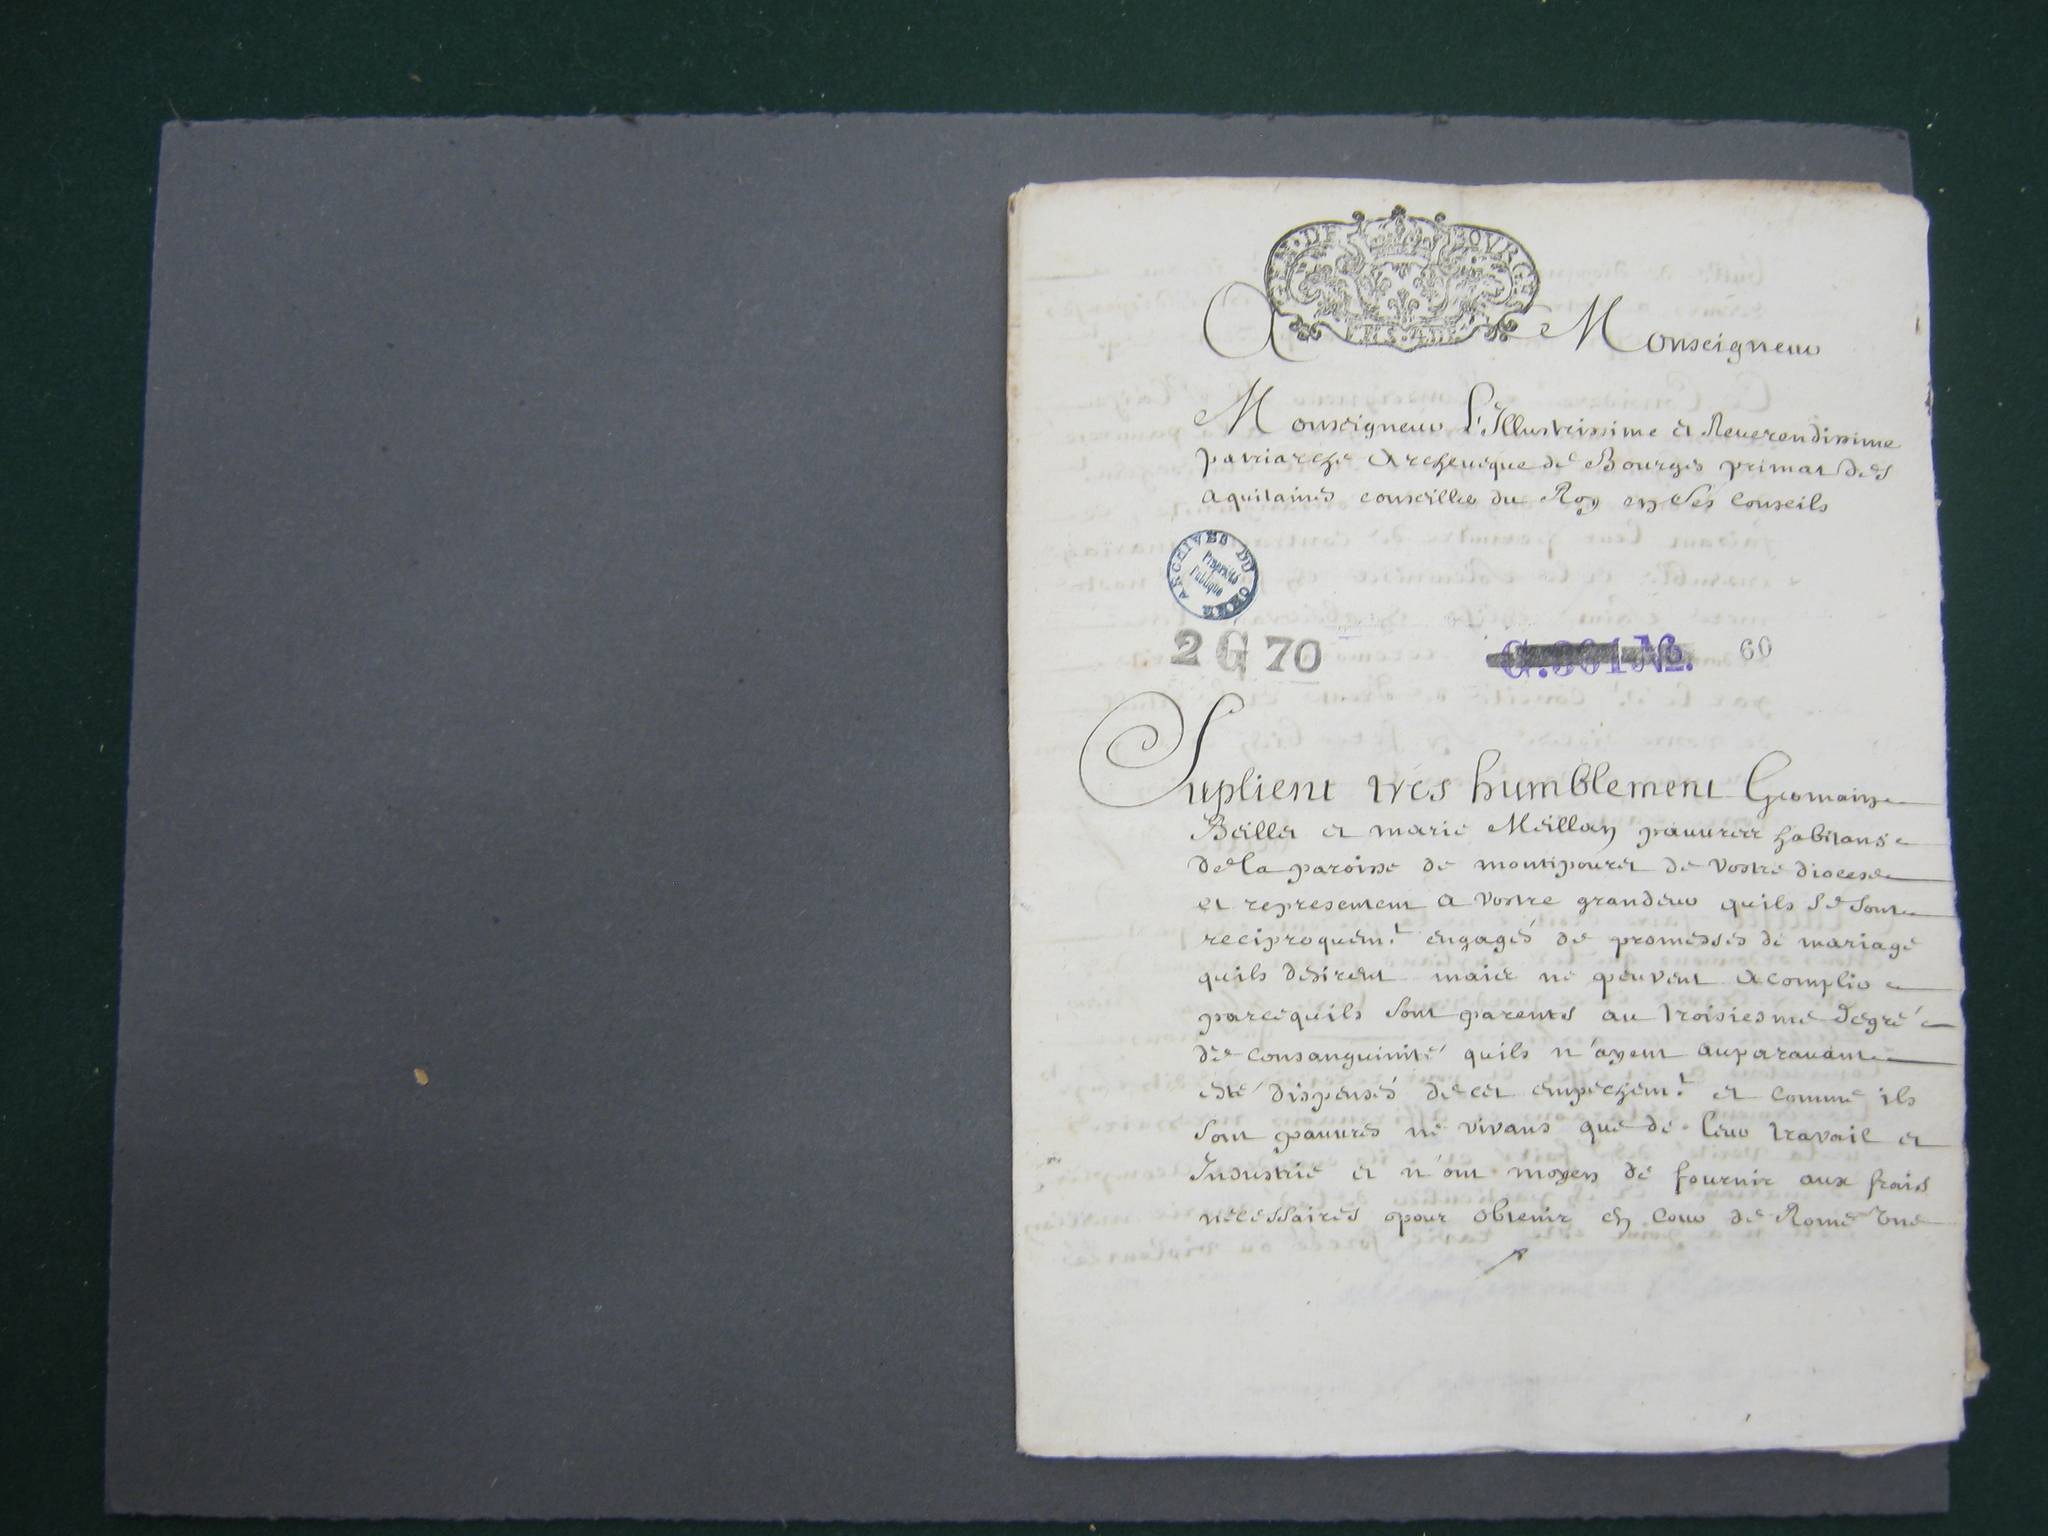 GEN. DE BOVRGES
A Monseigneur
Monseigneur L'Illustrissime et Reverendissime
patriarche Archeuéque de Bourges primat des
aquitaines conseiller du Roy en Ses Conseils
ARCHIVES DU CHER
Propriété
Publique
2 G 70 No. 60
Suplient tres humblement Germain
Beillet et marie Meillan pauures habitans
de la paroisse de montipouret de Vostre diocese
et representent a Vostre grandeur quils se sont
reciproquem.t engagés de promesses de mariage
quils desirent mais ne peuvent acomplir
parcequils sont parents au troisiesme degré
de consanguinité quils n'ayent auparavant
esté dispensés de cet empéchem.t et comme ils
sont pauures ne vivans que de leur travail et
Industrie et n'ont moyen de fournir aux frais
necessaires pour obtenir en Cour de Rome Une